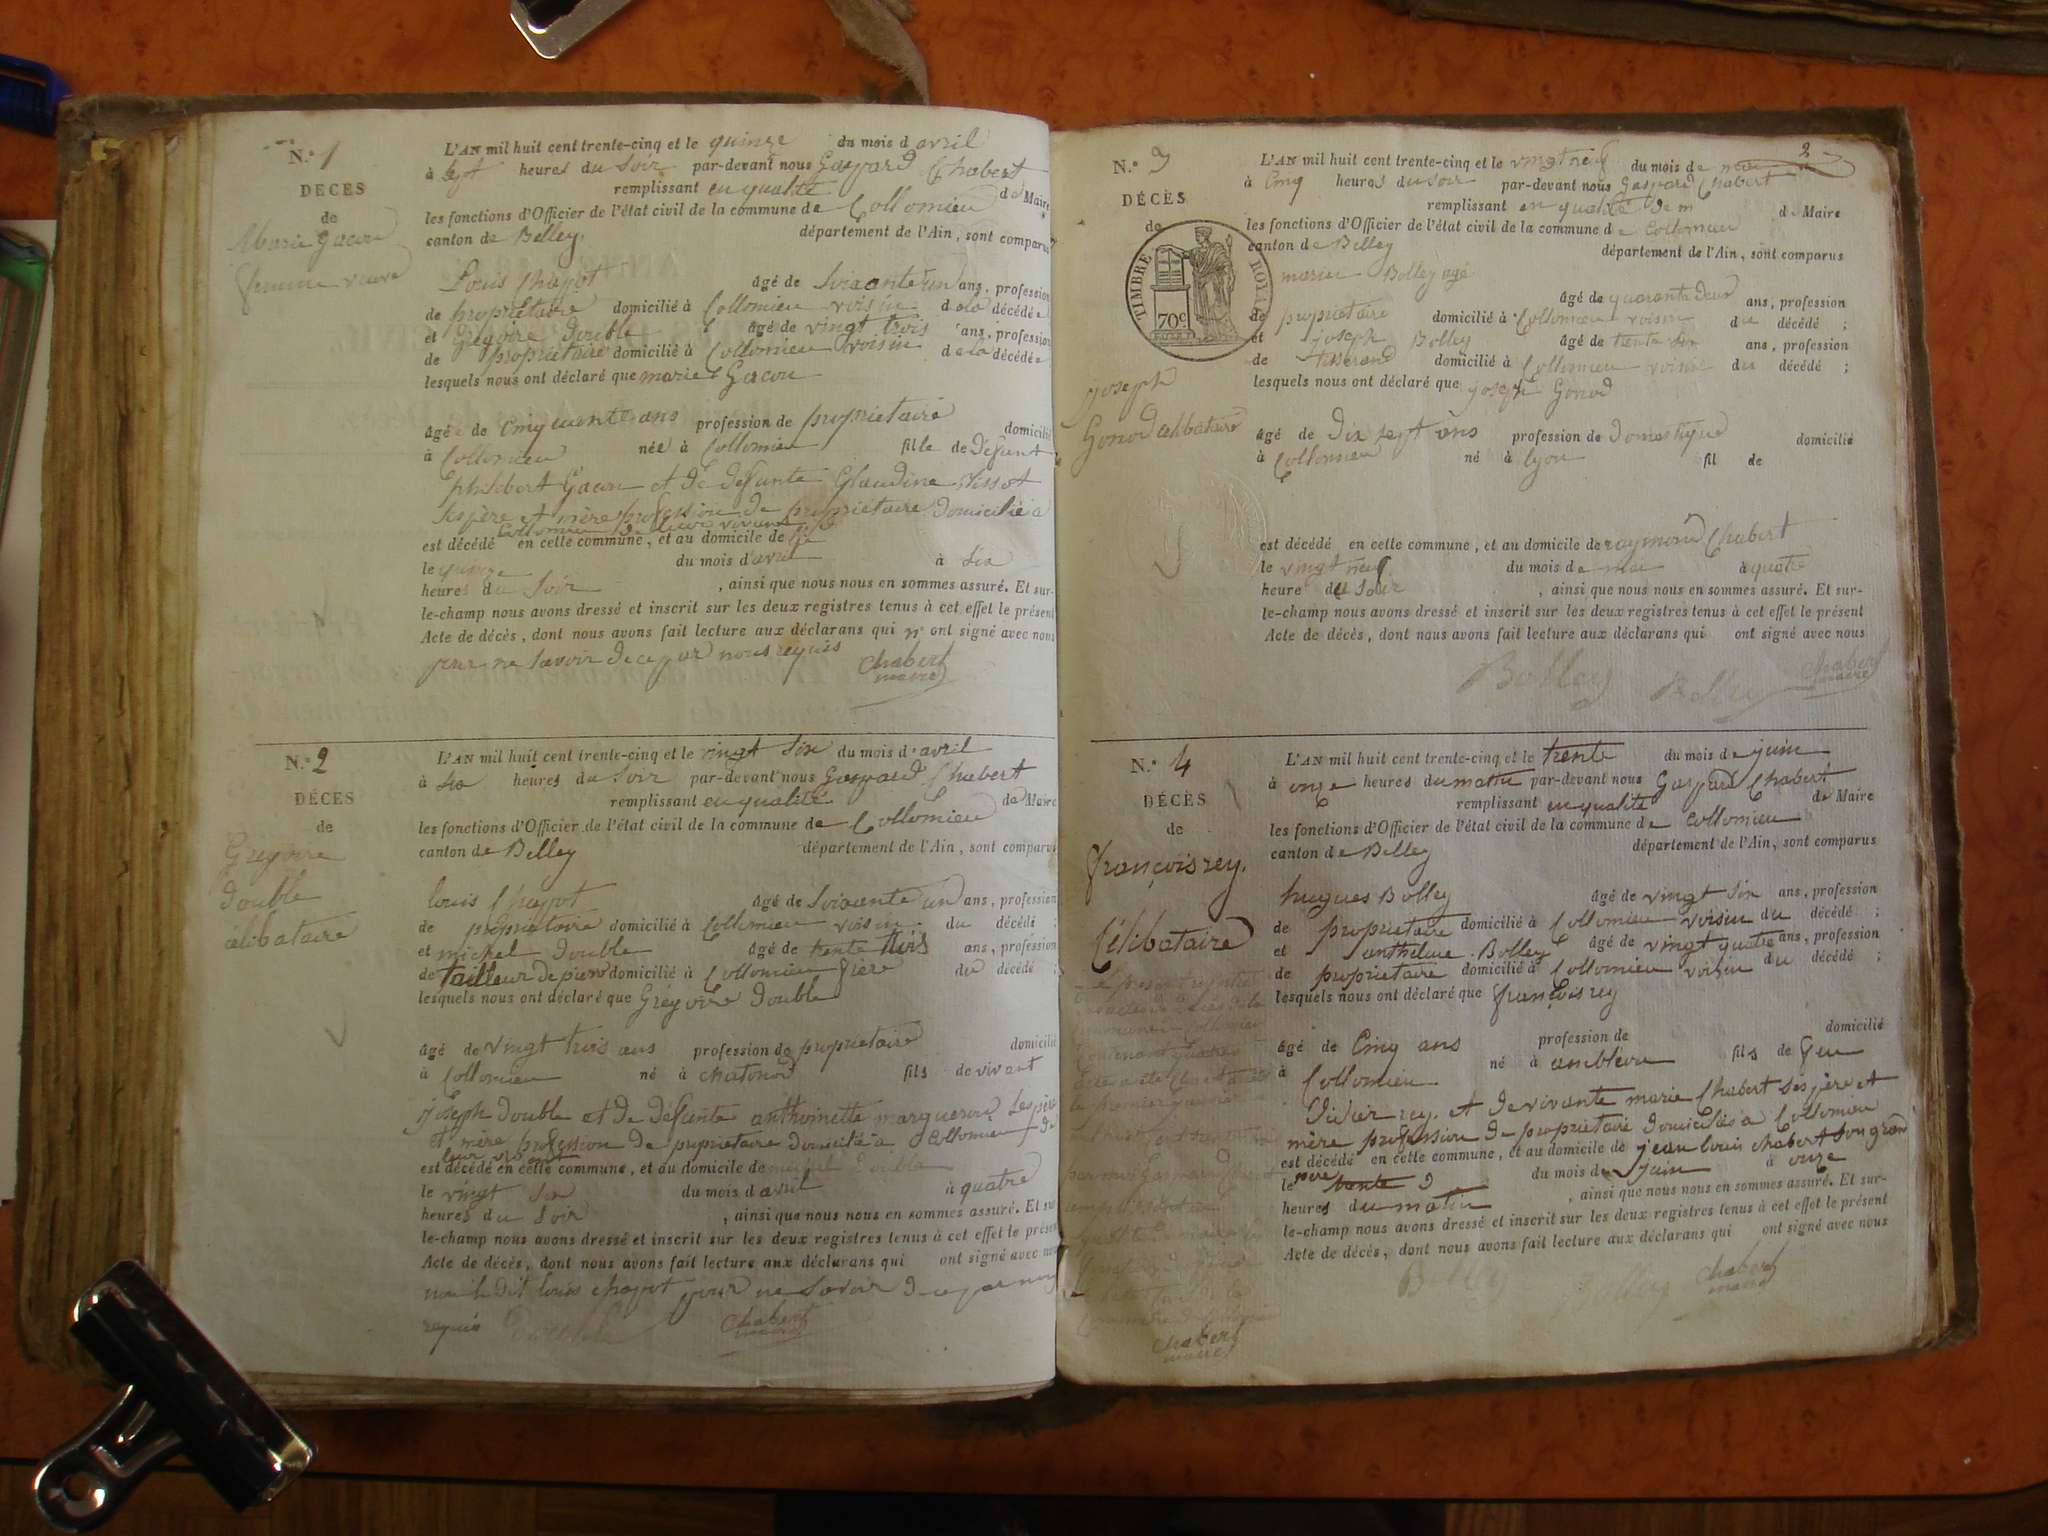 N.° 1
DÉCÈS
de
Marie Gacon
femme veuve
L'AN mil huit cent trente-cinq et le quinze du mois d avril
à sept heures du soir par-devant nous Gaspard Chabert
remplissant en qualité de Maire
les fonctions d'Officier de l'état civil de la commune de Collomieu
canton de Belley département de l'Ain, sont comparus
Louis Chapot âgé de soixante un ans, profession
de propriétaire domicilié à Collomieu voisin de la décédée
et Grégoire Double âgé de vingt trois ans, profession
de propriétaire domicilié à Collomieu voisin de la décédée
lesquels nous ont déclaré que marie Gacon
âgée de cinquante ans profession de propriétaire domicilié
à Collomieu née à Collomieu fille de défunt
philibert Gacon et de défunte Claudine
ses père et mère profession de propriétaire domicilié à
Collomieu de leur vivant
est décédé en cette commune, et au domicile de
le quinze du mois d'avril à six
heures du soir , ainsi que nous nous en sommes assuré. Et sur-
le-champ nous avons dressé et inscrit sur les deux registres tenus à cet effet le présent
Acte de décès, dont nous avons fait lecture aux déclarans qui n' ont signé avec nous
pour ne savoir de ce par nous requis
Chabert
maire
N.° 2
DÉCÈS
de
Grégoire
Double
célibataire
L'AN mil huit cent trente-cinq et le vingt six du mois d'avril
à six heures du soir par-devant nous Gaspard Chabert
remplissant en qualité de Maire
les fonctions d'Officier de l'état civil de la commune de Collomieu
canton de Belley département de l'Ain, sont comparus
louis Chapot âgé de soixante un ans, profession
de propriétaire domicilié à Collomieu voisin du décédé ;
et michel Double âgé de trente trois ans, profession
de tailleur de pierre domicilié à Collomieu frère du décédé ;
lesquels nous ont déclaré que Grégoire Double
âgé de vingt trois ans profession de propriétaire domicilié
à Collomieu né à chatonod fils de vivant
joseph Double et de défunte anthoinette ses père
et mère profession de propriétaire domicilié à Collomieu de
leur vivant
est décédé en cette commune, et au domicile de michel Double
le vingt six du mois d avril à quatre
heures du soir , ainsi que nous nous en sommes assuré. Et sur-
le-champ nous avons dressé et inscrit sur les deux registres tenus à cet effet le présent
Acte de décès, dont nous avons fait lecture aux déclarans qui ont signé avec nous
non le dit louis chapot pour ne savoir de ce par nous
requis Double Chabert
maire
2
N.° 3
DÉCÈS
de
TIMBRE ROYAL
70c
joseph
Gonod célibataire
L'AN mil huit cent trente-cinq et le vingt neuf du mois de mai
à cinq heures du soir par-devant nous Gaspard Chabert
remplissant en qualité de m de Maire
les fonctions d'Officier de l'état civil de la commune de Collomieu
canton de Belley département de l'Ain, sont comparus
marin Bolley agé âgé de quarante deux ans, profession
de propriétaire domicilié à Collomieu voisin du décédé ;
et joseph Bolley âgé de trente six ans, profession
de tisserand domicilié à Collomieu voisin du décédé ;
lesquels nous ont déclaré que joseph Gonod
âgé de dix sept ans profession de domestique domicilié
à Collomieu né à lyon fil de
est décédé en cette commune, et au domicile de raymond Chabert
le vingt neuf du mois de mai à quatre
heure du soir , ainsi que nous nous en sommes assuré. Et sur-
le-champ nous avons dressé et inscrit sur les deux registres tenus à cet effet le présent
Acte de décès, dont nous avons fait lecture aux déclarans qui ont signé avec nous
Bolley Bolley Chabert
maire
N.° 4
DÉCÈS
de
françois rey.
Célibataire
L'AN mil huit cent trente-cinq et le trente du mois de juin
à onze heures du matin par-devant nous Gaspard Chabert
remplissant en qualité de Maire
les fonctions d'Officier de l'état civil de la commune de Collomieu
canton de Belley département de l'Ain, sont comparus
hugues Bolley âgé de vingt six ans, profession
de propriétaire domicilié à Collomieu voisin du décédé ;
et anthelme Bolley âgé de vingt quatre ans, profession
de propriétaire domicilié à Collomieu voisin du décédé ;
lesquels nous ont déclaré que françois rey
âgé de cinq ans profession de domicilié
à Collomieu né à ambléon fils de feu
Didier rey. et de vivante marie Chabert ses père et
mère profession de propriétaire domiciliés à Collomieu
est décédé en cette commune, et au domicile de jean louis chabert son grand
père
le trente du mois de juin à onze
heures du matin , ainsi que nous nous en sommes assuré. Et sur-
le-champ nous avons dressé et inscrit sur les deux registres tenus à cet effet le présent
Acte de décès, dont nous avons fait lecture aux déclarans qui ont signé avec nous
Bolley Bolley Chabert
maire
Le présent registre
Contenant quatre
Chabert
maire